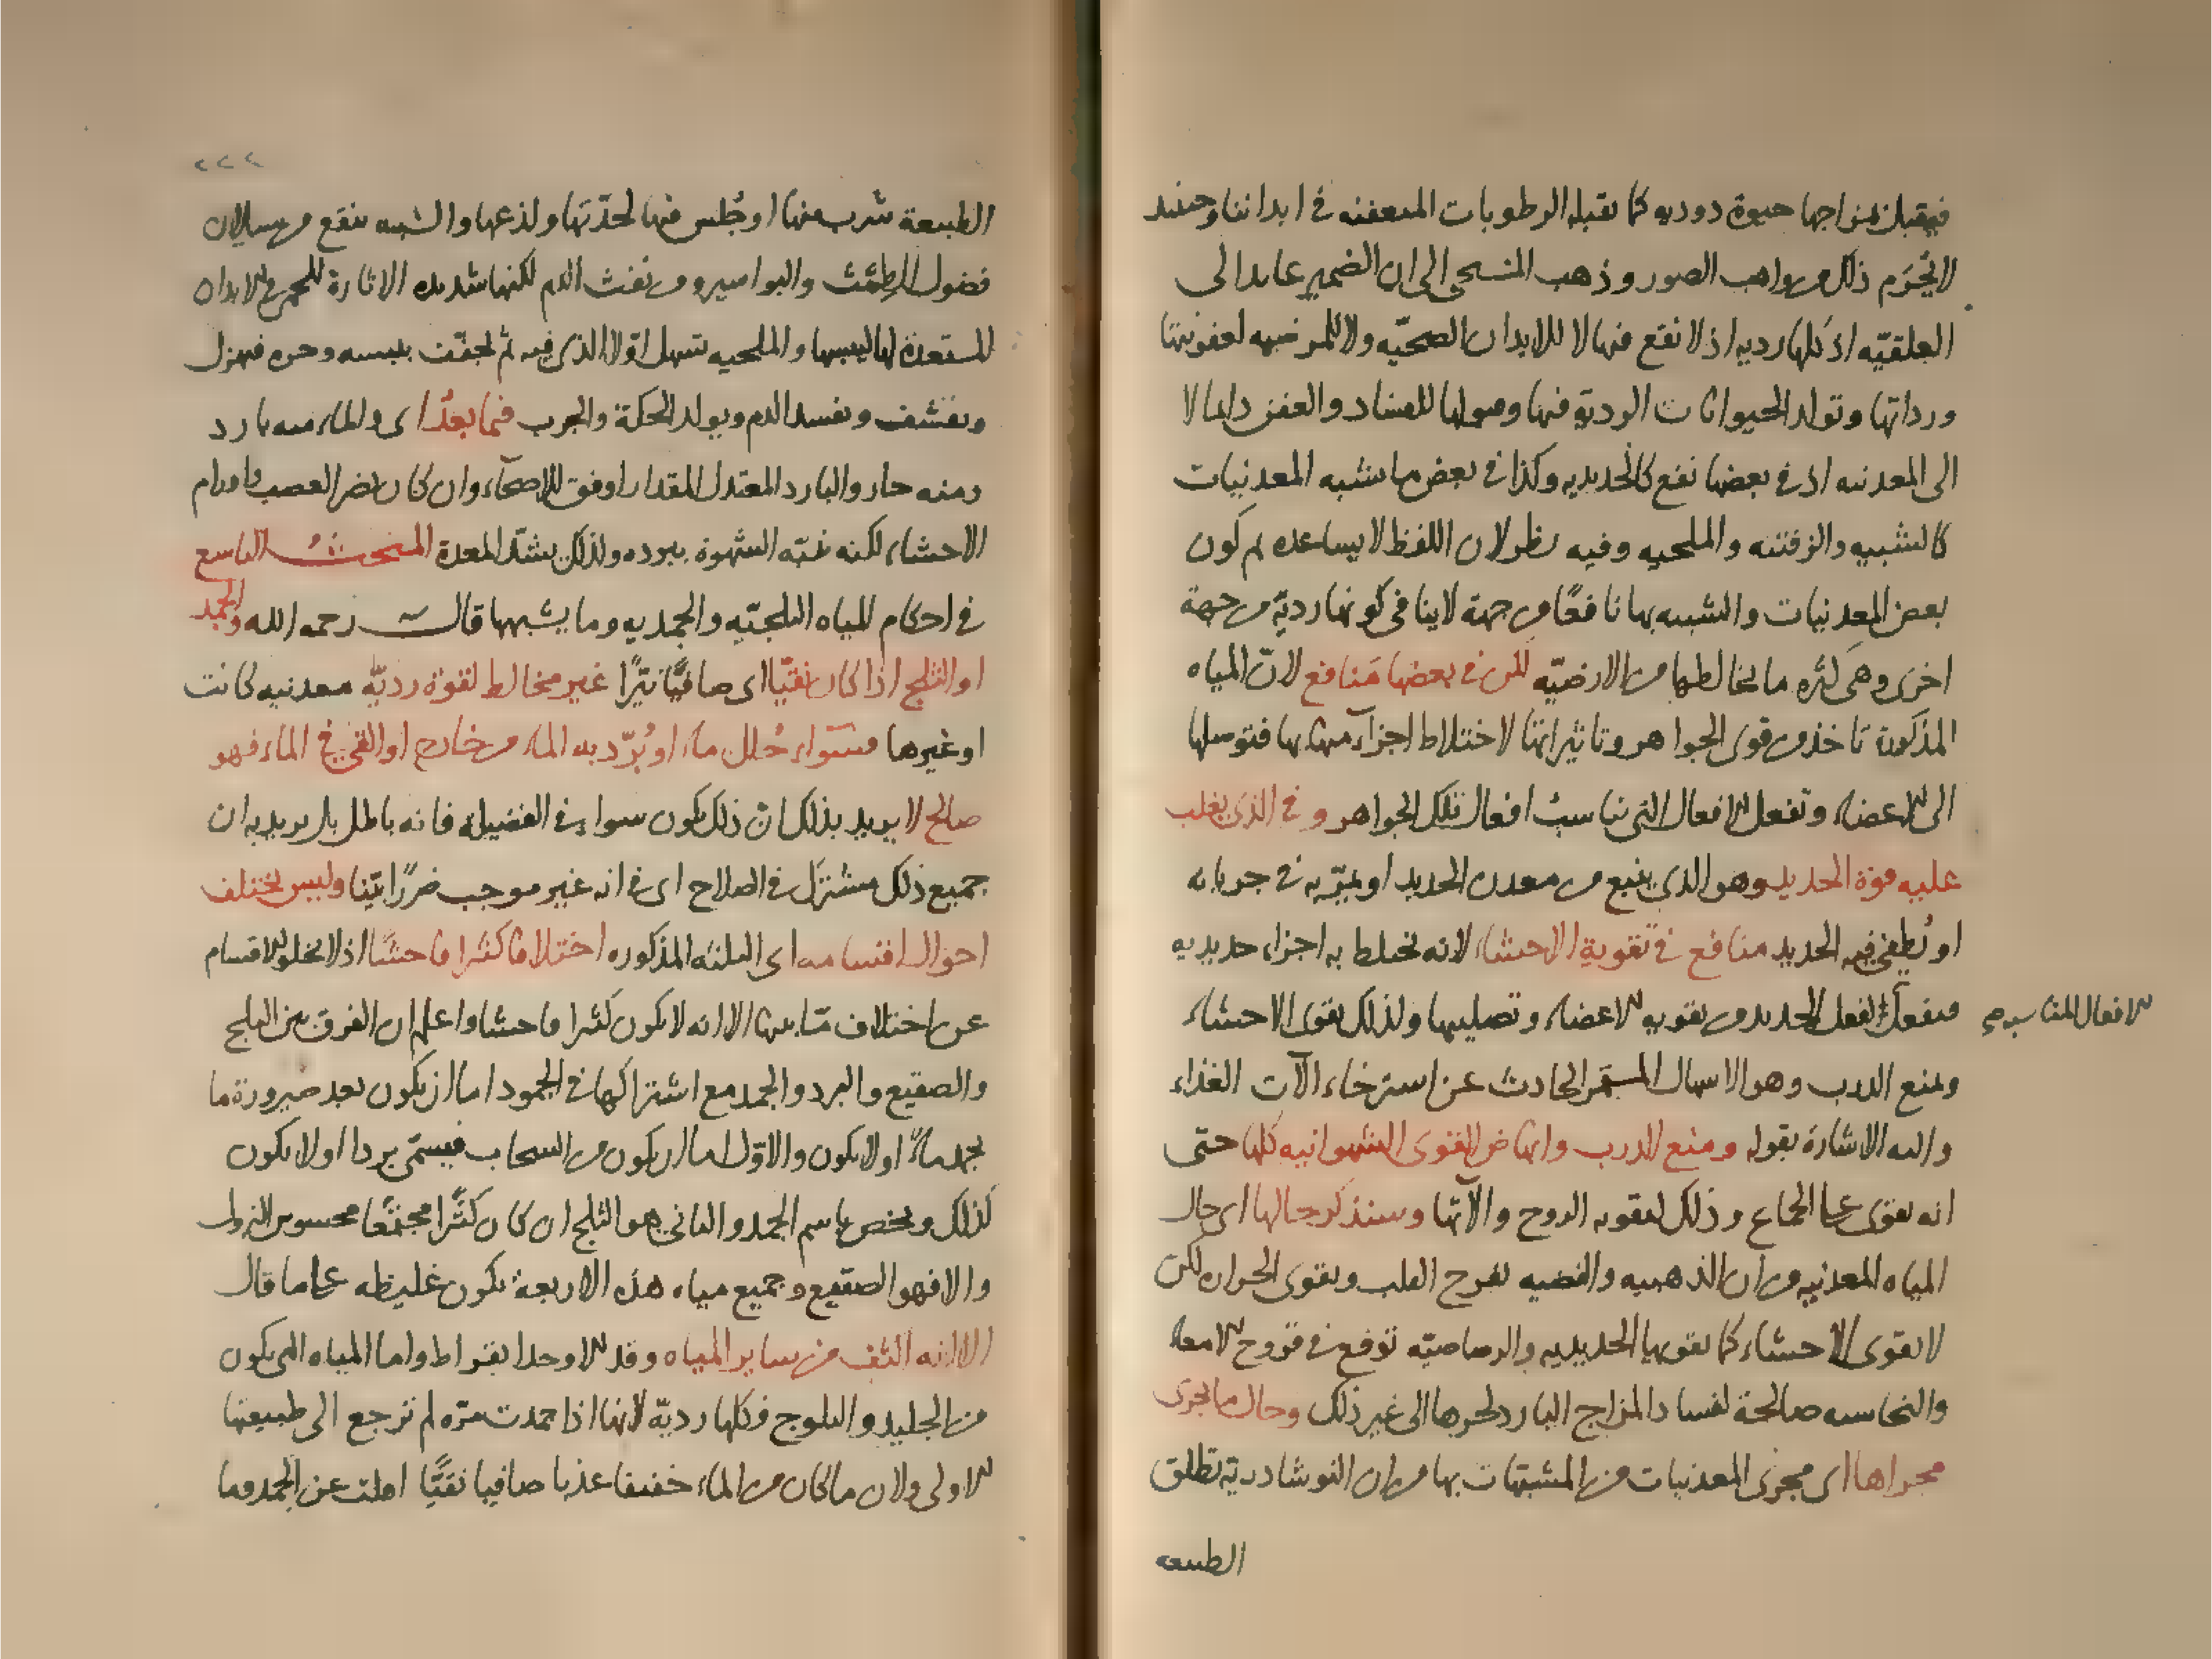 فيقبلن بمزاجها حيوة دوديه كما تقبله الرطوبات المتعفنه في ابداننا وحينئذ
لا يُحْرَم ذلك من واهب الصور وذهب المسيحي الى ان الضمير عايد الى
العلقيّه اذ كلها رديه اذ لا نفع فيها لا للابدان الصحيّه ولا للمرضيه لعفونتها
ورداتها وتولد الحيوانات الرديّه فيها وصولها للفساد والعفن دايما لا
الى المعدنيه اذ في بعضها نفع كالحديديه وكذا في بعض ما يشبه المعدنيات
كالشبيه والزفتيه والملحيه وفيه نظر لان اللفظ لا يساعده ثم كون
بعض المعدنيات والشبيه بها نافعًا من جهة لا ينافي كونها رديّة من جهة
اخرى وهي كثره ما يخالطها من الارضيّه لكن في بعضها مَنافع لانّ المياه
المذكورة تاخذ من قوى الجواهر وتاثيراتها لاختلاط اجزآء منها بها فتوصلها
الى الاعضاء وتفعل الافعال التي تناسب افعال تلك الجواهر وفي الذي يغلب
عليه قوة الحديد وهو الذي ينبع من معدن الحديد او يمرّ به في جريانه
او يُطفى فيه الحديد منافع في تقوية الاحشاء لانه يختلط به اجزاء حديديه
فيفعل لفعل الحديد من تقويه الاعضاء وتصليبها ولذلك يقوى الاحشاء
الافعال المناسبه صح
ويمنع الذرب وهو الاسهال المستمر الحادث عن استرخاء الآت الغذاء
واليه الاشارة بقوله ومنع الذرب وانهاض القوى الشهوانيه كلها حتى
انه يقوى على الجماع وذلك لتقويه الروح والآتها وسنذكر حالها اى حال
المياه المعدنيه من ان الذهبيه والفضيه تفرح القلب وتقوى الحرارة لكن
لا تقوى الاحشاء كما تقويها الحديديه والرصاصيّه توقع في قروح الامعاء
والنحاسيه صالحة لفساد المزاج البارد لحرها الى غير ذلك وحال ما يجرى
مجراها اى مجرى المعدنيات من المشبهات بها من ان النوشادريّة تطلق
الطبيعه
٢٢٢
الطبيعة شرب منها او جُلس فيها لحدّتها ولذعها والشبيه تنفع من سيلان
فضول الطِمْث والبواسير ومن نفث الدم لكنها شديده الاثارة للحمى في الابدان
المستعدة لها ليبسها والملحيه تسهل اوّلا الذي فيه ثم تجفّف بيبسه وحره فيهزل
ويقشف ويفسد الدم ويولد الحكة والجرب فيما بعدُ اى والماء منه بارد
ومنه حار والبارد المعتدل المقدار اوفق للاصحاء وان كان يضر العصب واورام
الاحشاء لكنه ينبّه الشهوة ببرده ولذلك يشدّ المعدة المبحث التاسع
في احكام المياه الثلجيّه والجمديه وما يشبهها قال رحمه الله والجمد
او الثلج اذا كان نقيّا اى صافيًا نيّرًا غير مخالط لقوة رديّه معدنيه كانت
او غيرها فسَوآء حُلل ماء او بُرّد به الماء من خارج او القي في الماء فهو
صالح لا يريد بذلك انّ ذلك يكون سواء في الفضيله فانه باطل بل يريد به ان
جميع ذلك مشترك في الصلاح اى في انه غير موجب ضررًا بيّنا وليس يختلف
احوال اقسامه اى الثلثه المذكوره اختلافا كثيرا فاحشًا اذ لا يخلو الاقسام
عن اختلاف مّا بينها الا انه لا يكون كثيرا فاحشا واعلم ان الفرق بين الثلج
والصقيع والبرد والجمد مع اشتراكها في الجمود اما ان يكون بعد صيرورة ما
يجمد ماءً او لا يكون والاوّل اما ان يكون من السحاب فيسمّى بردا او لا يكون
كذلك ويخص باسم الجمد والثاني هو الثلج ان كان كثيرًا مجتمعًا محسوس النزول
والا فهو الصقيع وجميع مياه هذه الاربعة تكون غليظه على ما قال
الا انه اكثف من ساير المياه وقد الاوحد ابقراط واما المياه التي يكون
من الجليد والثلوج فكلها رديّة لانها اذا جمدت مرّه لم ترجع الى طبيعتها
الاولى ولان ما كان من الماء خفيفا عذبا صافيا نقيًّا افلت عن الجمد وما